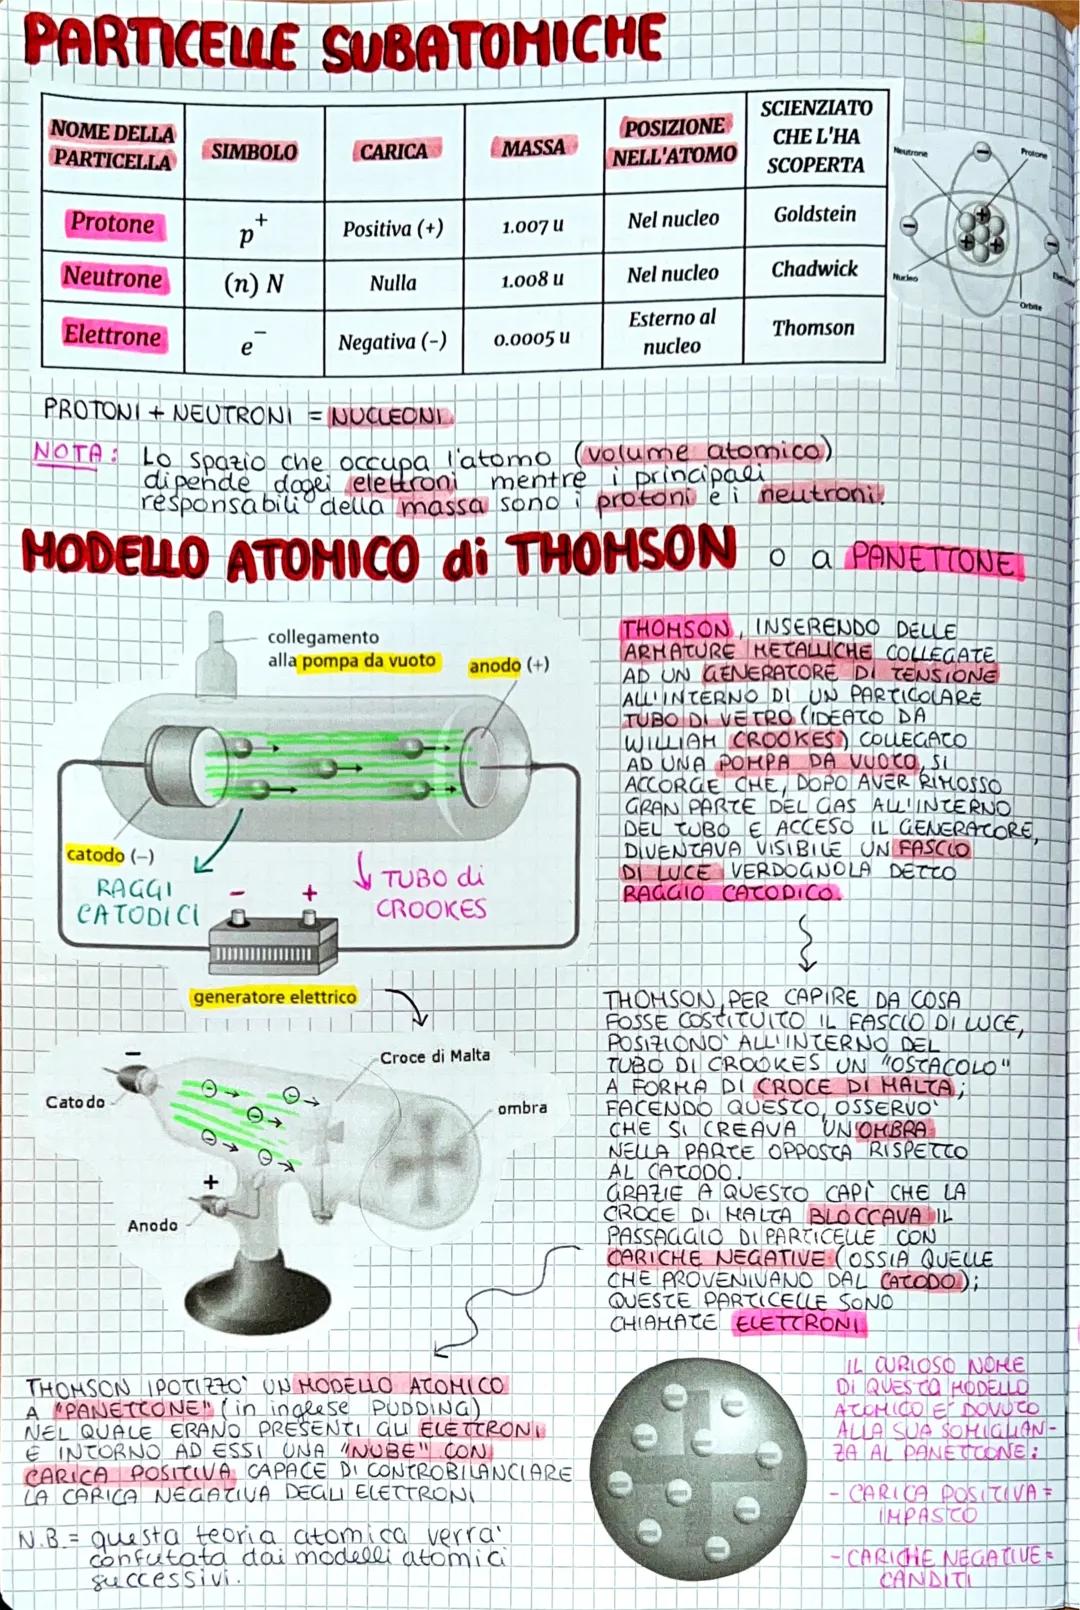 PARTICELLE SUBATOMICHE
NOME DELLA PARTICELLA SIMBOLO CARICA MASSA POSIZIONE NELL'ATOMO SCIENZIATO CHE L'HA SCOPERTA
Protone p+ Positiva (+) 1.007 u Nel nucleo Goldstein
Neutrone (n) N Nulla 1.008 u Nel nucleo Chadwick
Elettrone e− Negativa (-) 0.0005 u Esterno al nucleo Thomson
Neutrone
Protone
Nucleo
Orbite
PROTONI + NEUTRONI = NUCLEONI
NOTA: Lo spazio che occupa l'atomo (volume atomico)
dipende dagli elettroni mentre i principali
responsabili della massa sono i protoni e i neutroni.
MODELLO ATOMICO di THOMSON o a PANETTONE
collegamento
alla pompa da vuoto
anodo (+)
catodo (-)
RAGGI
CATODICI
TUBO di
CROOKES
- +
generatore elettrico
THOMSON, INSERENDO DELLE
ARMATURE METALLICHE COLLEGATE
AD UN GENERATORE DI TENSIONE
ALL'INTERNO DI UN PARTICOLARE
TUBO DI VETRO (IDEATO DA
WILLIAM CROOKES) COLLEGATO
AD UNA POMPA DA VUOTO, SI
ACCORGE CHE, DOPO AVER RIMOSSO
GRAN PARTE DEL GAS ALL'INTERNO
DEL TUBO E ACCESO IL GENERATORE,
DIVENTAVA VISIBILE UN FASCIO
DI LUCE VERDOGNOLA DETTO
RAGGIO CATODICO.
-
Catodo
Croce di Malta
ombra
+
Anodo
THOMSON, PER CAPIRE DA COSA
FOSSE COSTITUITO IL FASCIO DI LUCE,
POSIZIONO' ALL'INTERNO DEL
TUBO DI CROOKES UN "OSTACOLO"
A FORMA DI CROCE DI MALTA;
FACENDO QUESTO, OSSERVO'
CHE SI CREAVA UN'OMBRA
NELLA PARTE OPPOSTA RISPETTO
AL CATODO.
GRAZIE A QUESTO CAPÌ CHE LA
CROCE DI MALTA BLOCCAVA IL
PASSAGGIO DI PARTICELLE CON
CARICHE NEGATIVE (OSSIA QUELLE
CHE PROVENIVANO DAL CATODO);
QUESTE PARTICELLE SONO
CHIAMATE ELETTRONI
THOMSON IPOTIZZO' UN MODELLO ATOMICO
A "PANETTONE" (in inglese PUDDING)
NEL QUALE ERANO PRESENTI GLI ELETTRONI
E INTORNO AD ESSI UNA "NUBE" CON
CARICA POSITIVA CAPACE DI CONTROBILANCIARE
LA CARICA NEGATIVA DEGLI ELETTRONI
N.B.= questa teoria atomica verra'
confutata dai modelli atomici
successivi.
IL CURIOSO NOME
DI QUESTO MODELLO
ATOMICO E' DOVUTO
ALLA SUA SOMIGLIAN-
ZA AL PANETTONE:
- CARICA POSITIVA =
IMPASTO
- CARICHE NEGATIVE =
CANDITI